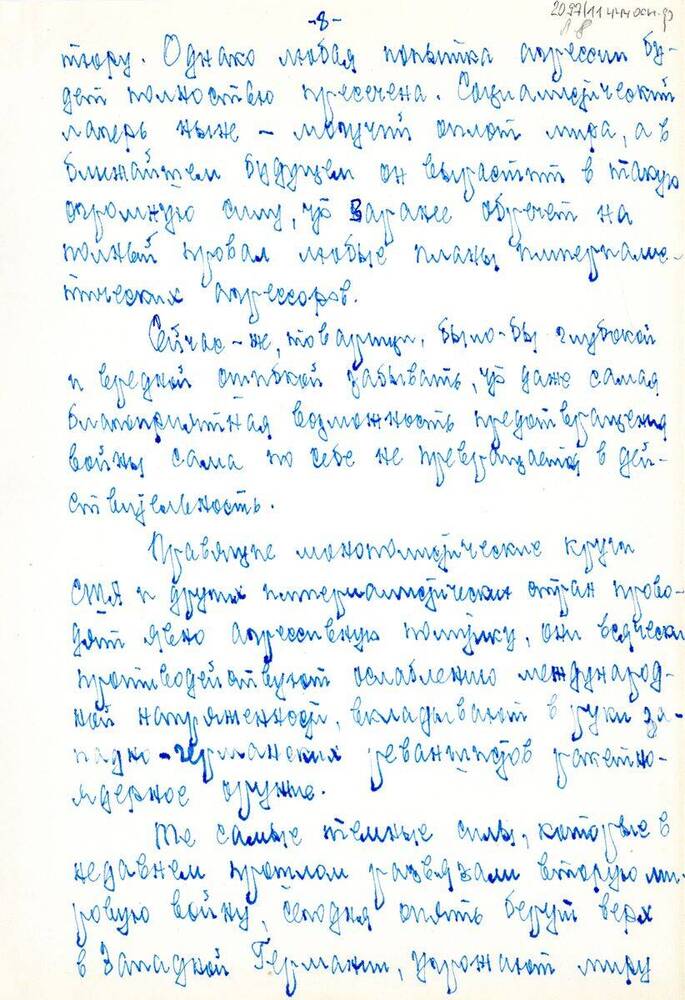 -8-
тюру. Однако любая попытка агрессии бу-
дет полностью пресечена. Социалистический
лагерь ныне - могучий оплот мира, а в
ближайшем будущем он вырастит в такую
огромную силу, что заранее обречет на
полный провал любые планы империалис-
тических агрессоров.
Сейчас-же, товарищи, было-бы глубокой
и вредной ошибкой забывать, что даже самая
благоприятная возможность предотвращения
войны сама по себе не превращается в дей-
ствительность.
Правящие монополистические круги
США и других империалистических стран прово-
дят явно агрессивную политику, они всячески
противодействуют ослаблению международ-
ной напряженности, вкладывают в руки за-
падно-германских реваншистов ракетно-
ядерное оружие.
Те самые темные силы, которые в
недавнем прошлом развязали вторую ми-
ровую войну, сегодня опять берут верх
в Западной Германии, угрожают миру